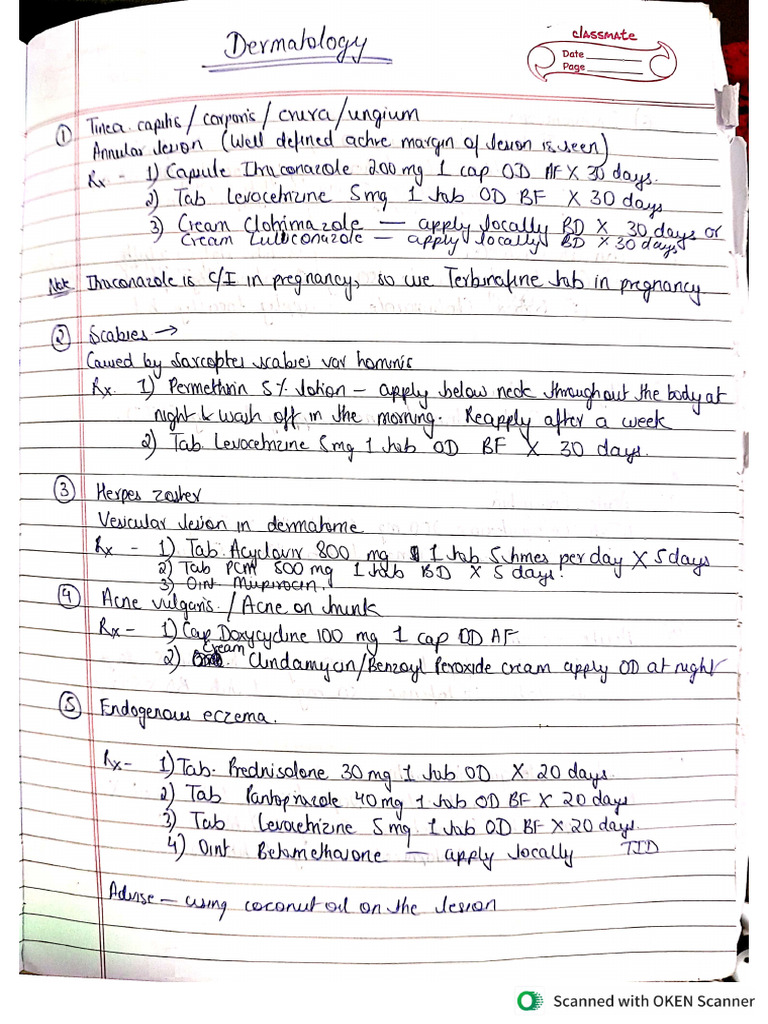 Dermatology
classmate
Date
Page
① Tinea capitis / corporis / crura / ungium
Annular lesion (Well defined active margin of lesion is seen)
Rx - 1) Capsule Itraconazole 200 mg 1 cap OD AF X 30 days.
2) Tab Levocetrizine 5mg 1 tab OD BF X 30 days
3) Cream Clotrimazole — apply locally BD X 30 days or
Cream Luliconazole — apply locally BD X 30 days
Note Itraconazole is C/I in pregnancy, so we Terbinafine tab in pregnancy
② Scabies →
Caused by Sarcoptes scabiei var hominis
Rx. 1) Permethrin 5% lotion – apply below neck throughout the body at
night & wash off in the morning. Reapply after a week
2) Tab Levocetrizine 5mg 1 tab OD BF X 30 days.
③ Herpes zoster
Vesicular lesion in dermatome
Rx - 1) Tab Acyclovir 800 mg 1 tab 5 times per day X 5 days
2) Tab PCM 500 mg 1 tab BD X 5 days.
3) Oint Mupirocin.
④ Acne vulgaris / Acne on trunk
Rx- 1) Cap Doxycycline 100 mg 1 cap OD AF
2) Cream Clindamycin/Benzoyl Peroxide cream apply OD at night
⑤ Endogenous eczema.
Rx- 1) Tab. Prednisolone 30 mg 1 tab OD X 20 days
2) Tab Pantoprazole 40 mg 1 tab OD BF X 20 days
3) Tab Levocetrizine 5 mg 1 tab OD BF X 20 days.
4) Oint Betamethasone — apply locally TID
Advise – using coconut oil on the lesion
Scanned with OKEN Scanner